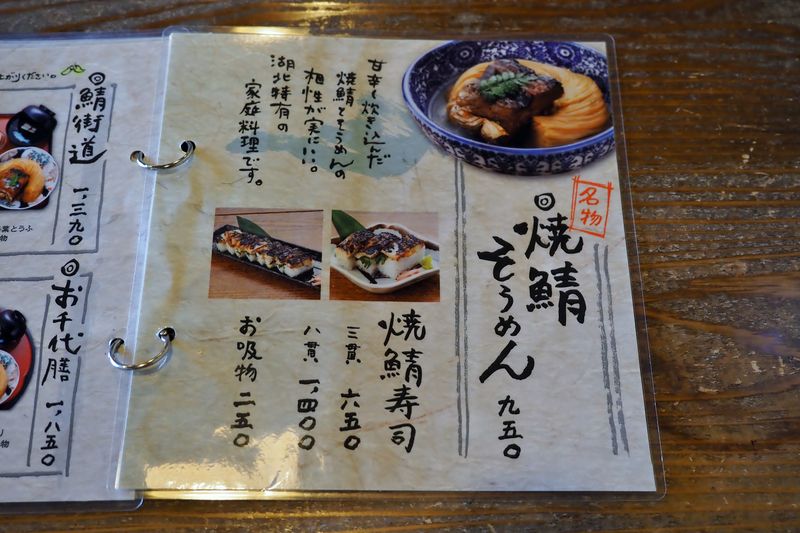 名物
焼鯖
そうめん 九五〇
甘辛く炊き込んだ
焼鯖とそうめんの
相性が実にいい。
湖北特有の
家庭料理です。
焼鯖寿司
三貫 六五〇
八貫 一、四〇〇
お吸物 二五〇
上がりください。
鯖街道
一、三九〇
葉とうふ
物
お千代膳
一、八五〇
り
物